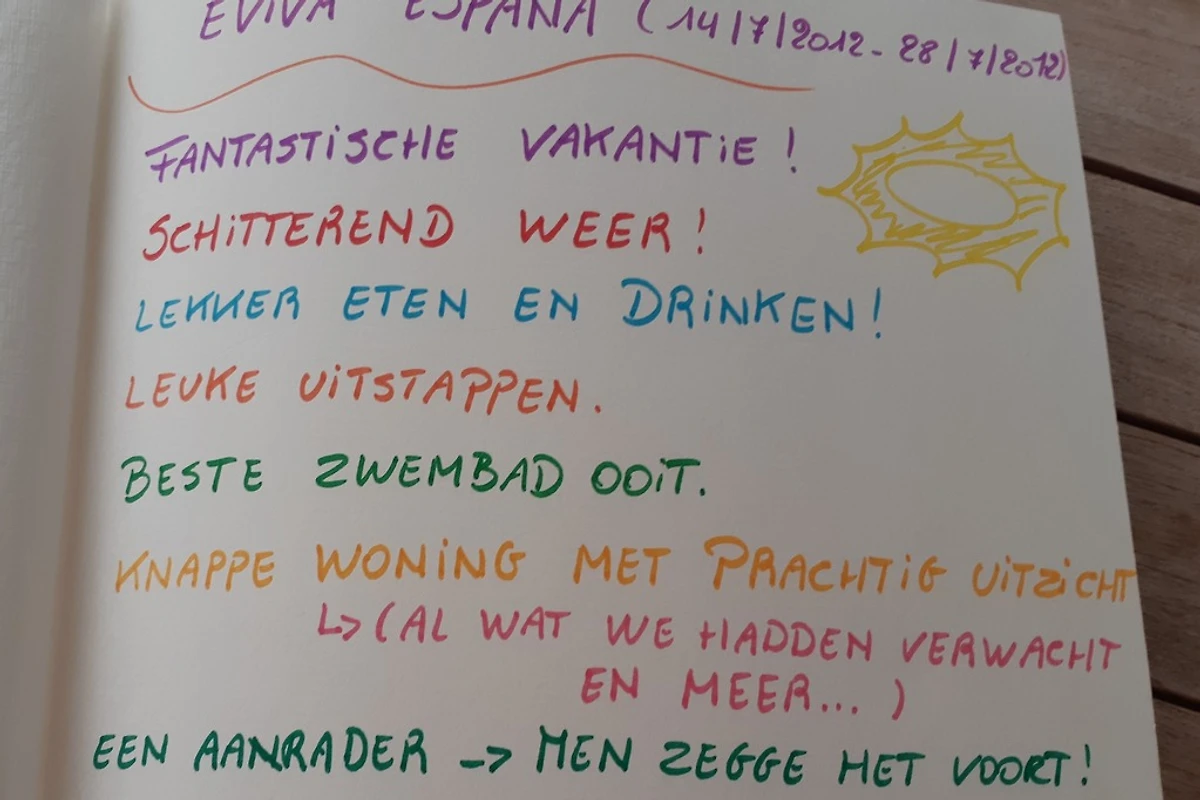 EVIVA ESPANA (14/7/2012 - 28/7/2012)
FANTASTISCHE VAKANTIE!
SCHITTEREND WEER!
LEKKER ETEN EN DRINKEN!
LEUKE UITSTAPPEN.
BESTE ZWEMBAD OOIT.
KNAPPE WONING MET PRACHTIG UITZICHT
↳ (AL WAT WE HADDEN VERWACHT
EN MEER... )
EEN AANRADER -> MEN ZEGGE HET VOORT!